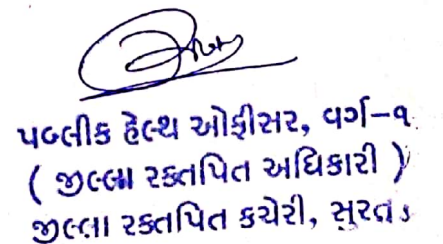 પબ્લીક હેલ્થ ઓફીસર, વર્ગ-૧
( જીલ્લા રક્તપિત અધિકારી )
જીલ્લા રક્તપિત કચેરી, સુરત